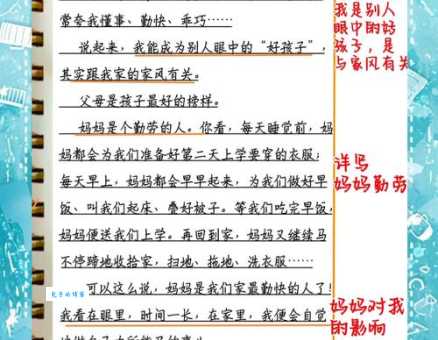 常夸我懂事、勤快、乖巧……
说起来，我能成为别人眼中的“好孩子”，
其实跟我家的家风有关。
父母是孩子最好的榜样。
妈妈是个勤劳的人。你看，每天睡觉前，妈
妈都会为我们准备好第二天上学要穿的衣服；
每天早上，妈妈都会早早起来，为我们做好早
饭、叫我们起床、叠好被子。等我们吃完早饭，
妈妈便送我们上学。再回到家，妈妈又继续马
不停蹄地收拾家，扫地、拖地、洗衣服……
可以这么说，妈妈是我们家最勤快的人了！
我看在眼里，时间一长，在家里，我便会自觉
我是别人
眼中的好
孩子，是
与家风有关
详写
妈妈勤劳
妈妈对我
的影响